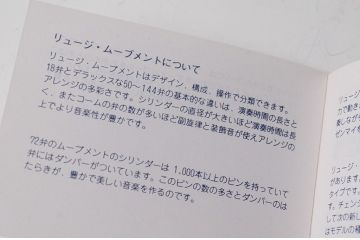 リュージ・ムーブメントについて
リュージ・ムーブメントはデザイン、構成、操作で分類できます。
18弁とデラックスな50〜144弁の基本的な違いは、演奏時間の長さと
アレンジの多彩さです。シリンダーの直径が大きいほど演奏時間は長
く、またコームの弁の数が多いほど副旋律と装飾音が使えアレンジの
上でより音楽性が豊かです。
72弁のムーブメントのシリンダーは 1,000本以上のピンを持っていて
弁にはダンパーがついています。このピンの数の多さとダンパーのは
たらきが、豊かで美しい音楽を作るのです。
リュー
があります。
タイプです。
す。チェンジ
して次の新し
はモデルの種